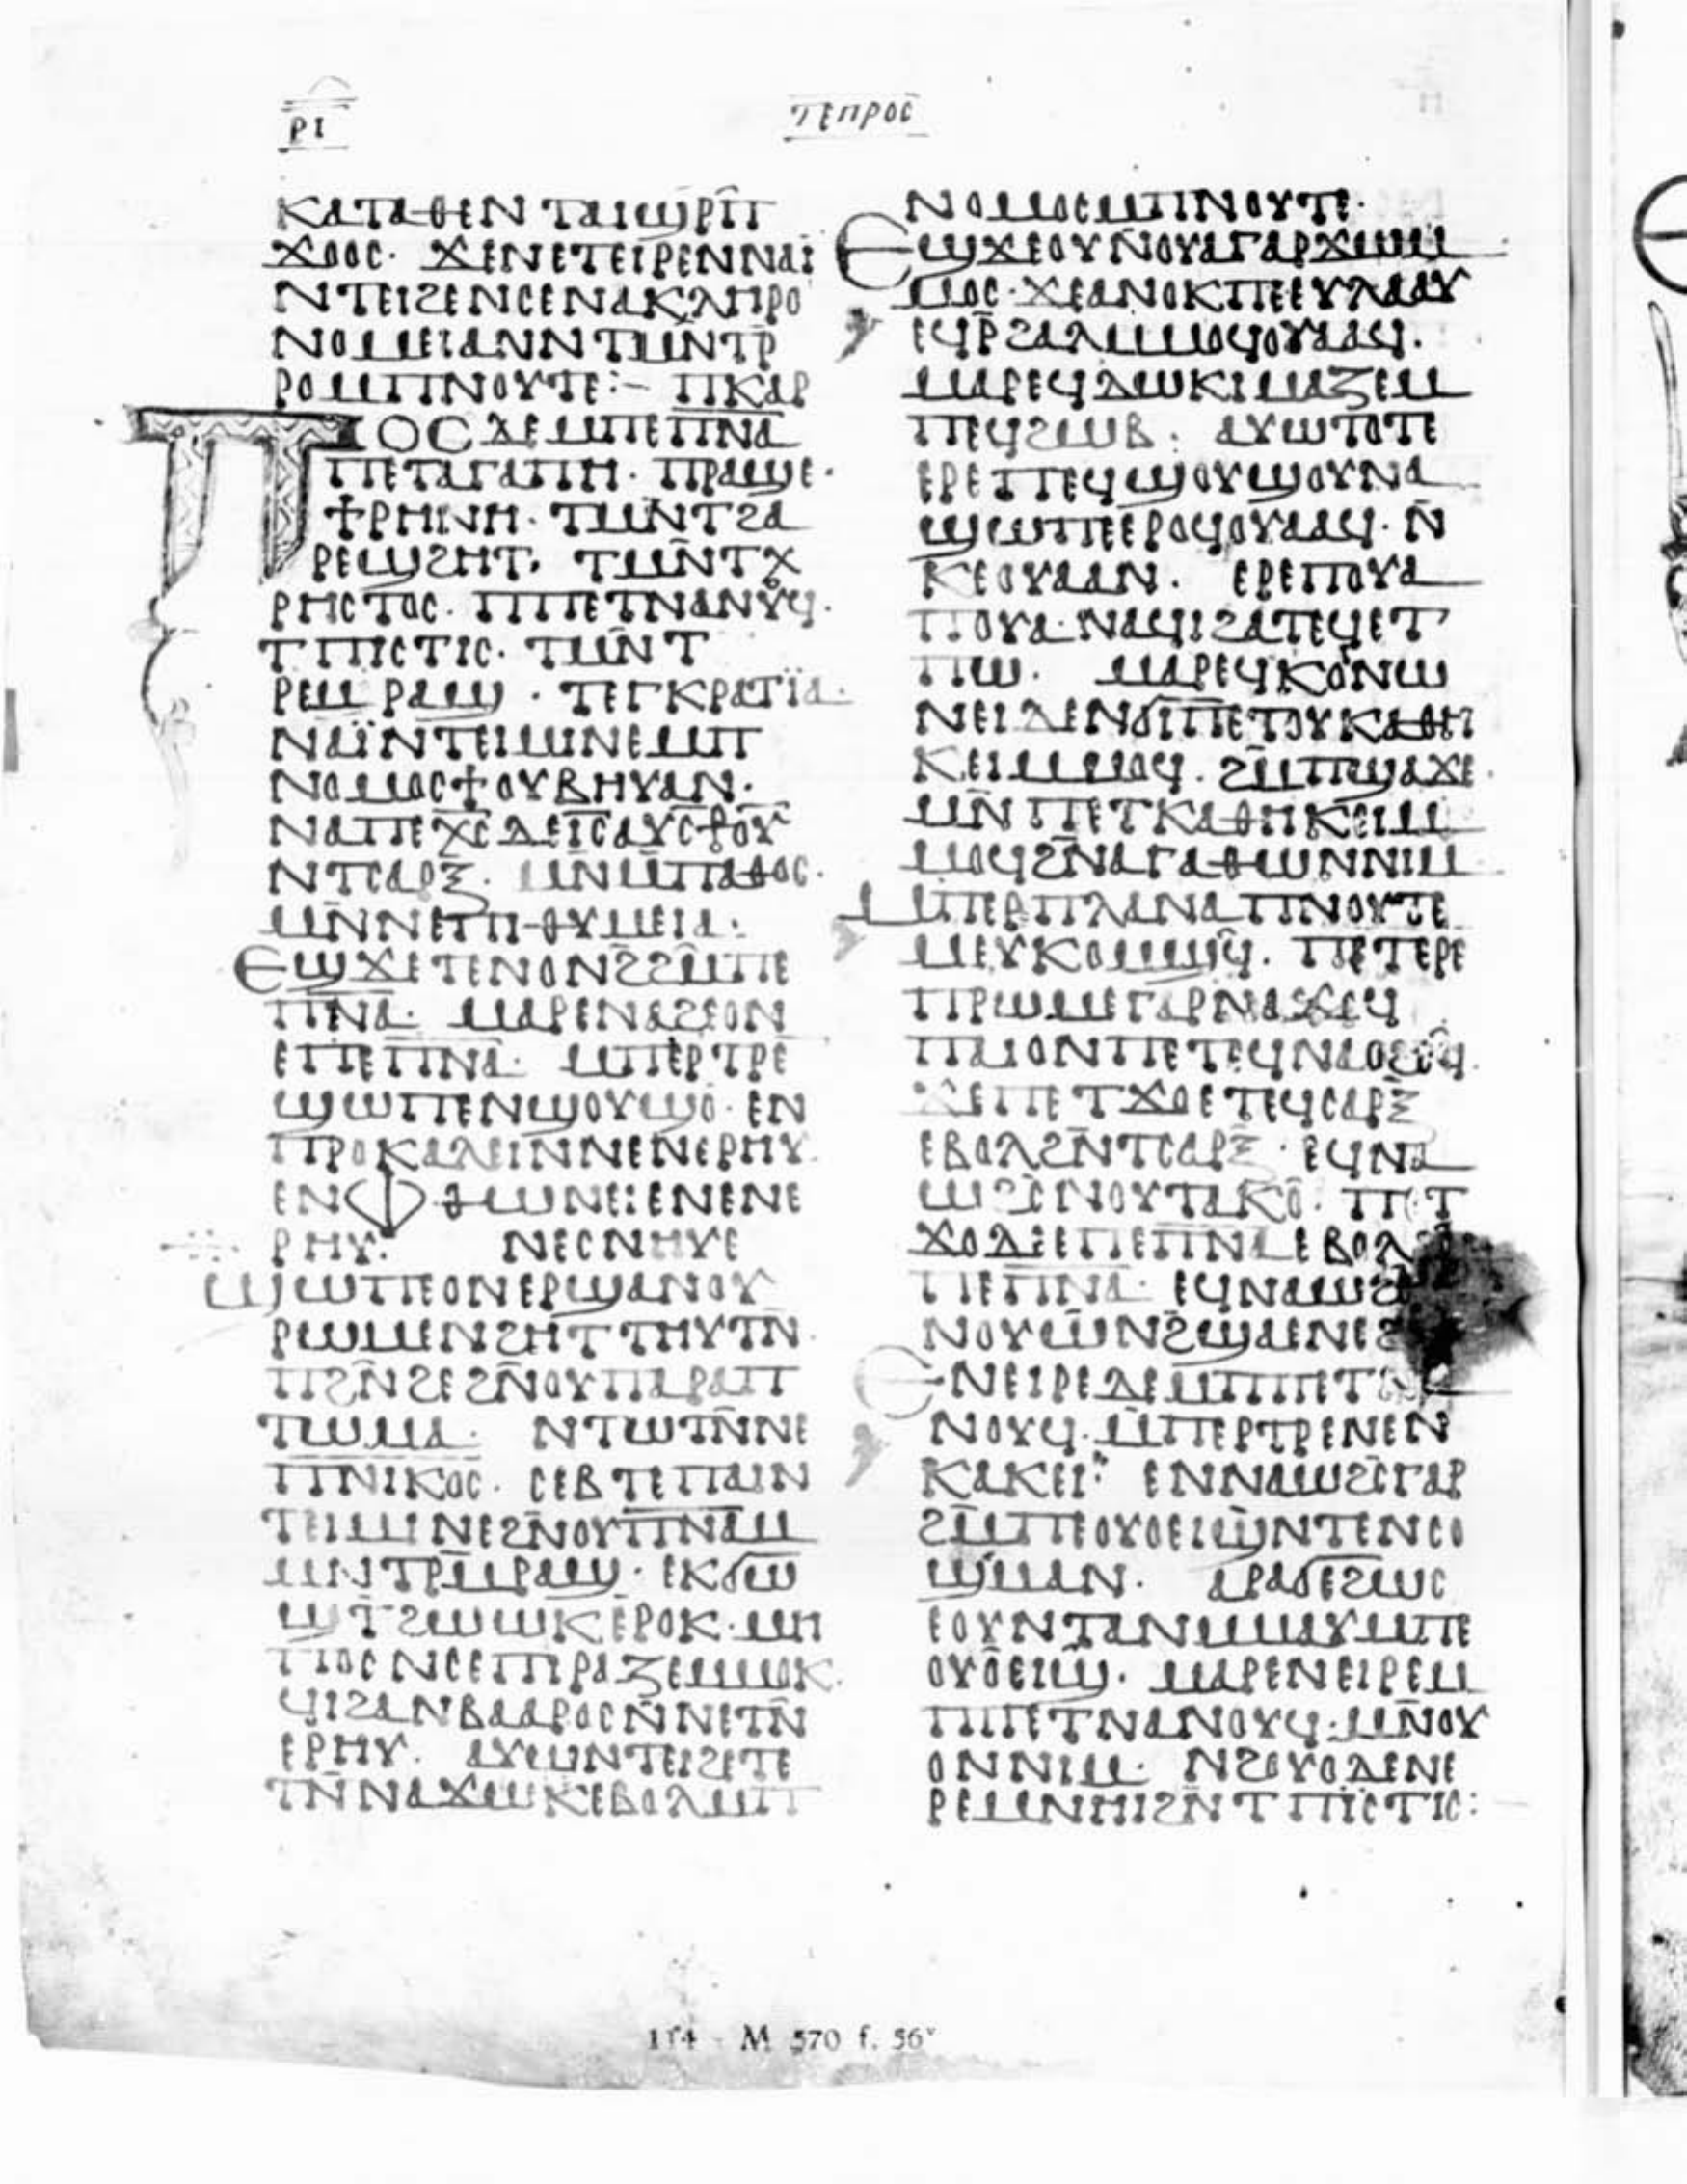 ⲣⲓ
ⲧⲉⲡⲣⲟⲥ
ⲕⲁⲧⲁⲑⲉⲛⲧⲁⲓϣⲣⲡ̅
ϫⲟⲟⲥ· ϫⲉⲛⲉⲧⲉⲓⲣⲉⲛⲛⲁⲓ
ⲛⲧⲉⲓϩⲉⲛⲥⲉⲛⲁⲕⲗⲏⲣⲟ
ⲛⲟⲙⲉⲓⲁⲛⲛⲧⲙⲛ̅ⲧⲣ̅
ⲣⲟⲙⲡⲛⲟⲩⲧⲉ:– ⲡⲕⲁⲣ
ⲡⲟⲥⲇⲉⲙⲡⲉⲡⲛ̅ⲁ̅
ⲡⲉⲧⲁⲅⲁⲡⲏ· ⲡⲣⲁϣⲉ·
ϯⲣⲏⲛⲏ· ⲧⲙⲛ̅ⲧϩⲁ
ⲣⲉϣϩⲏⲧ· ⲧⲙⲛ̅ⲧⲭ
ⲣⲏⲥⲧⲟⲥ· ⲡⲡⲉⲧⲛⲁⲛⲟⲩϥ·
ⲧⲡⲓⲥⲧⲓⲥ· ⲧⲙⲛ̅ⲧ
ⲣⲉⲙⲣⲁϣ· ⲧⲉⲅⲕⲣⲁⲧⲓ̈ⲁ·
ⲛⲁⲓ̈ⲛⲧⲉⲓⲙⲓⲛⲉⲙⲡ
ⲛⲟⲙⲟⲥϯⲟⲩⲃⲏⲩⲁⲛ·
ⲛⲁⲡⲉⲭ̅ⲥ̅ⲇⲉⲓ̅ⲥ̅ⲁⲩⲥⳁⲟⲩ
ⲛⲧⲥⲁⲣⲝ· ⲙⲛ̅ⲙ̅ⲡⲁⲑⲟⲥ·
ⲙⲛ̅ⲛⲉⲡⲓⲑⲩⲙⲉⲓⲁ·
ⲉϣϫⲉⲧⲉⲛⲟⲛϩ̅ϩⲙ̅ⲡⲉ
ⲡⲛ̅ⲁ̅· ⲙⲁⲣⲉⲛⲁϩⲉⲟⲛ
ⲉⲡⲉⲡⲛ̅ⲁ̅· ⲙⲡⲉⲣⲧⲣⲉ
ϣⲱⲡⲉⲛϣⲟⲩϣⲟ· ⲉⲛ
ⲡⲣⲟⲕⲁⲗⲉⲓⲛⲛⲉⲛⲉⲣⲏⲩ·
ⲉⲛⲫⲑⲱⲛⲉⲓ:ⲉⲛⲉⲛⲉ
ⲣⲏⲩ: ⲛⲉⲥⲛⲏⲩⲉ
ϣⲱⲡⲉⲟⲛⲉⲣϣⲁⲛⲟⲩ
ⲣⲱⲙⲉⲛϩⲏⲧⲧⲏⲩⲧⲛ̅·
ⲡϩⲛ̅ϩⲉϩⲛ̅ⲟⲩⲡⲁⲣⲁⲡ
ⲧⲱⲙⲁ· ⲛⲧⲱⲧⲛ̅ⲛⲉ
ⲡⲛⲓⲕⲟⲥ· ⲥⲉⲃⲧⲉⲡⲁⲓⲛ
ⲧⲉⲓⲙⲓⲛⲉϩⲛ̅ⲟⲩⲡⲛ̅ⲁ̅ⲙ
ⲙⲛⲧⲣⲙ̅ⲣⲁϣ· ⲉⲕϭⲱ
ϣⲧ̅ϩⲱⲱⲕⲉⲣⲟⲕ· ⲙⲏ
ⲡⲟⲥⲛⲥⲉⲡⲓⲣⲁⲍⲉⲙⲙⲟⲕ·
ϥⲓϩⲁⲛⲃⲁⲁⲣⲟⲥⲛ̅ⲛⲉⲧⲛ̅
ⲉⲣⲏⲩ· ⲁⲩⲱⲛⲧⲉⲓϩⲉⲧⲉ
ⲧⲛ̅ⲛⲁϫⲱⲕⲉⲃⲟⲗⲙⲡ
ⲛⲟⲙⲟⲥⲙⲡⲛⲟⲩⲧⲉ·
ⲉϣϫⲉⲟⲩⲛ̅ⲟⲩⲁⲅⲁⲣϫⲱⲙ
ⲙⲟⲥ·ϫⲉⲁⲛⲟⲕⲡⲉⲉⲩⲗⲁⲁⲩ
ⲉϥⲣ̅ϩⲁⲗⲙⲙⲟϥⲟⲩⲁⲁϥ·
ⲙⲁⲣⲉϥⲇⲱⲕⲓⲙⲁⲍⲉⲙ
ⲡⲉϥϩⲱⲃ: ⲁⲩⲱⲧⲟⲧⲉ
ⲉⲣⲉⲡⲉϥϣⲟⲩϣⲟⲩⲛⲁ
ϣⲱⲡⲉⲉⲣⲟϥⲟⲩⲁⲁϥ· ⲛ̅
ⲕⲉⲟⲩⲁⲁⲛ· ⲉⲣⲉⲡⲟⲩⲁ
ⲡⲟⲩⲁ·ⲛⲁϥⲓϩⲁⲧⲉϥⲉⲧ
ⲡⲱ· ⲙⲁⲣⲉϥⲕⲟⲛⲱ
ⲛⲉⲓⲇⲉⲛϭⲓⲡⲉⲧⲟⲩⲕⲁⲑⲏ
ⲕⲉⲓⲙⲙⲟϥ· ϩⲙ̅ⲡϣⲁϫⲉ·
ⲙⲛ̅ⲡⲉⲧⲕⲁⲑⲏⲕⲉⲓⲙ
ⲙⲟϥϩⲛ̅ⲁⲅⲁⲑⲱⲛⲛⲓⲙ·
ⲙⲡⲉⲣⲡⲗⲁⲛⲁⲡⲛⲟⲩⲧⲉ
ⲙⲉⲩⲕⲟⲙϣϥ̅· ⲡⲉⲧⲉⲣⲉ
ⲡⲣⲱⲙⲉⲅⲁⲣⲛⲁϫⲟϥ
ⲡⲁⲓⲟⲛⲡⲉⲧⲉϥⲛⲁⲟϩⲥϥ·
ϫⲉⲡⲉⲧϫⲟⲉⲧⲉϥⲥⲁⲣⲝ
ⲉⲃⲟⲗϩⲛ̅ⲧⲥⲁⲣⲝ· ⲉϥⲛⲁ
ⲱϩⲥⲛⲟⲩⲧⲁⲕⲟ· ⲡⲉⲧ
ϫⲟⲇⲉⲉⲡⲉⲡⲛ̅ⲁ̅ⲉⲃⲟⲗ
ⲡⲉⲡⲛ̅ⲁ̅· ⲉϥⲛⲁⲱϩ
ⲛⲟⲩⲱⲛϩ̅ϣⲁⲉⲛⲉϩ
ⲉⲛⲉⲓⲣⲉⲇⲉⲙⲡⲡⲉⲧ
ⲛⲟⲩϥ· ⲙ̅ⲡⲉⲣⲧⲣⲉⲛⲉⲛ
ⲕⲁⲕⲉⲓ: ⲉⲛⲛⲁⲱϩⲥⲅⲁⲣ
ϩⲙ̅ⲡⲉⲟⲩⲟⲉⲓϣⲛⲧⲉⲛⲥⲟ
ϣⲙⲁⲛ· ⲁⲣⲁϭⲉϩⲱⲥ
ⲉⲟⲩⲛⲧⲁⲛⲙⲙⲁⲩⲙⲡⲉ
ⲟⲩⲟⲉⲓϣ· ⲙⲁⲣⲉⲛⲉⲓⲣⲉⲙ
ⲡⲡⲉⲧⲛⲁⲛⲟⲩϥ·ⲙⲛ̅ⲟⲩ
ⲟⲛⲛⲓⲙ· ⲛϩⲟⲩⲟⲇⲉⲛⲉ
ⲣⲉⲙⲛⲏⲓϩⲛ̅ⲧⲡⲓⲥⲧⲓⲥ:
114 - M 570 f. 56ᵛ